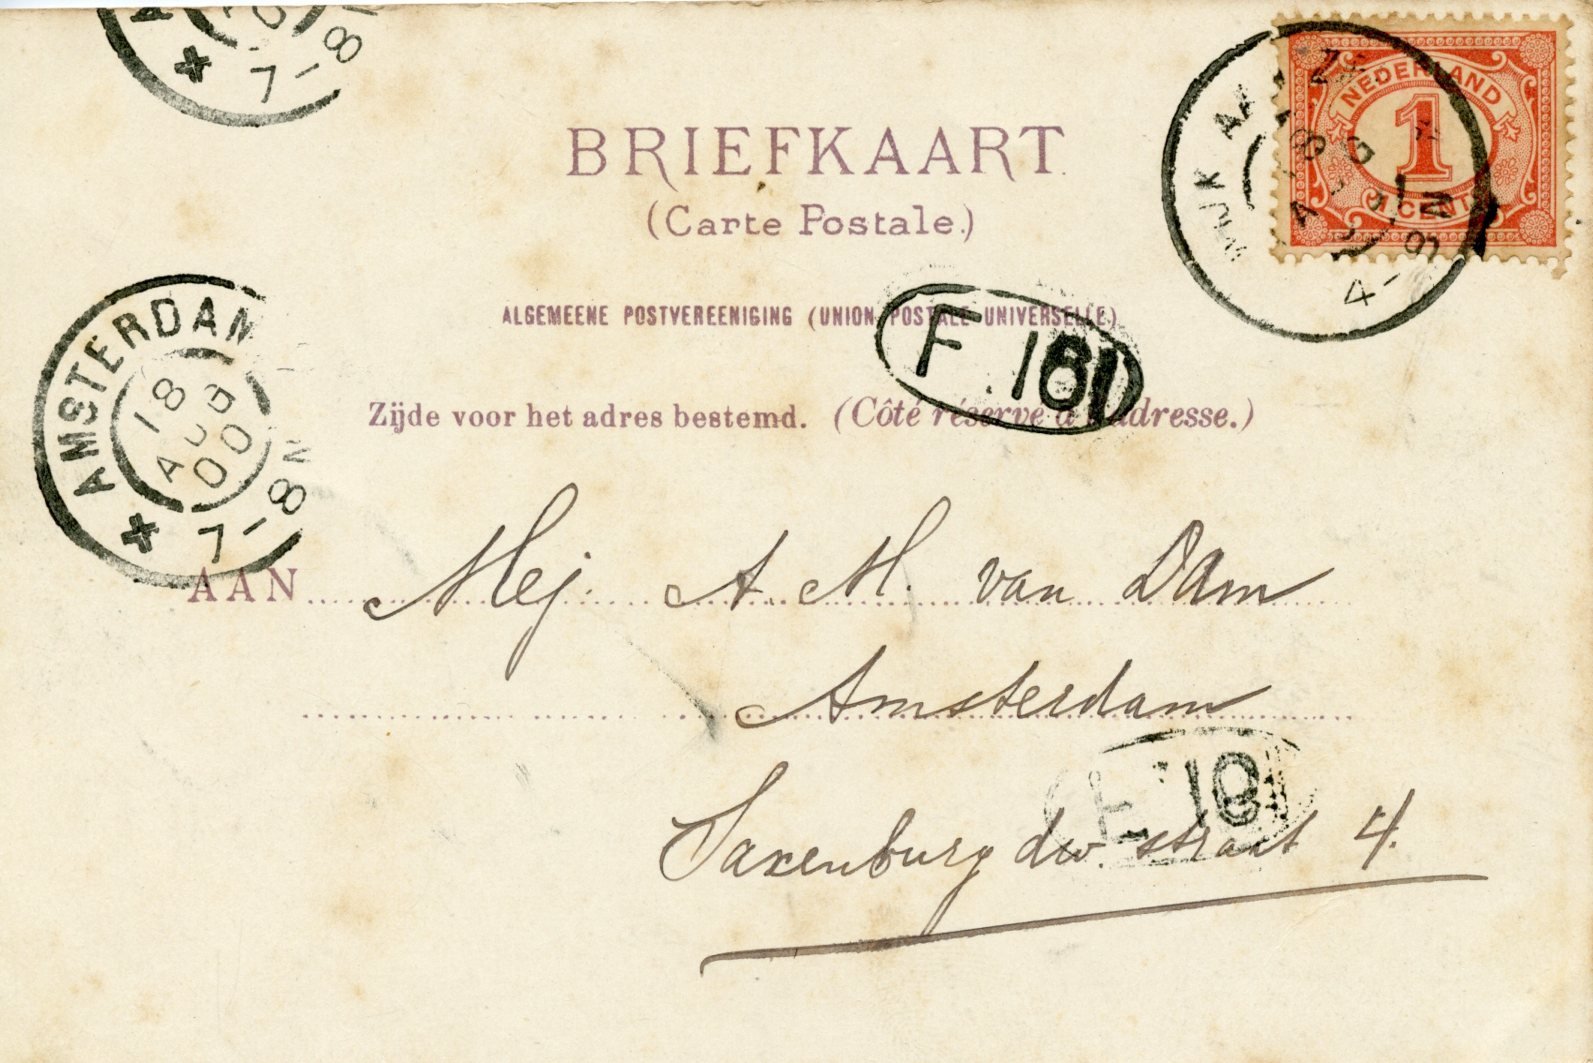 7-8
BRIEFKAART
(Carte Postale.)
NEDERLAND
1
CENT
WIJK AA
4-5
ALGEMEENE POSTVEREENIGING (UNION POSTALE UNIVERSELLE)
F. 181
Zijde voor het adres bestemd. (Côté réservé à l'adresse.)
AMSTERDAM
18
AUG
00
7-8N
AAN Mej. A. M. van Dam
Amsterdam
F 18
Saxenburg dw. straat 4.